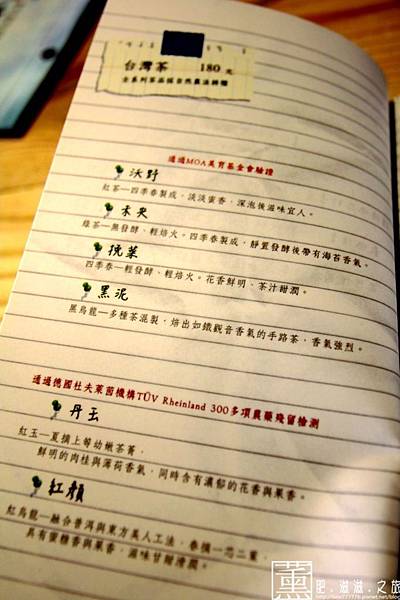 台灣茶 180 元
全系列茶品採自然農法耕種
通過MOA美育基金會驗證
沃野
紅茶—四季春製成，淡淡蜜香，深泡後滋味宜人。
未央
綠茶—無發酵、輕焙火。四季春製成，靜置發酵後帶有海苔香氣。
四季春—輕發酵、輕焙火。花香鮮明、茶汁甜潤。
黑泥
黑烏龍—多種茶混製，焙出如鐵觀音香氣的手路茶，香氣強烈。
通過德國杜夫萊茵機構TÜV Rheinland 300多項農藥殘留檢測
丹玉
紅玉—夏摘上等幼嫩茶菁，
鮮明的肉桂與薄荷香氣，同時含有濃郁的花香與果香。
紅顏
紅烏龍—融合普洱與東方美人工法，春摘一芯二葉，
具有蜜糖香與果香，滋味甘甜滑潤。
薰
肥．滋滋．之旅